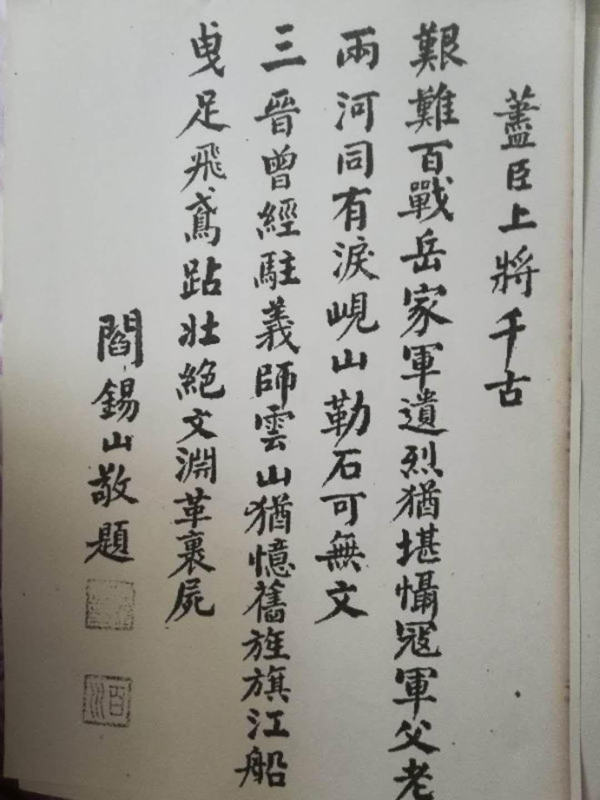 藎臣上將千古
艱難百戰岳家軍遺烈猶堪懾寇軍父老
兩河同有淚峴山勒石可無文
三晉曾經駐義師雲山猶憶舊旌旗江船
曳足飛鳶跕壯絕文淵革裹屍
閻錫山敬題
百川